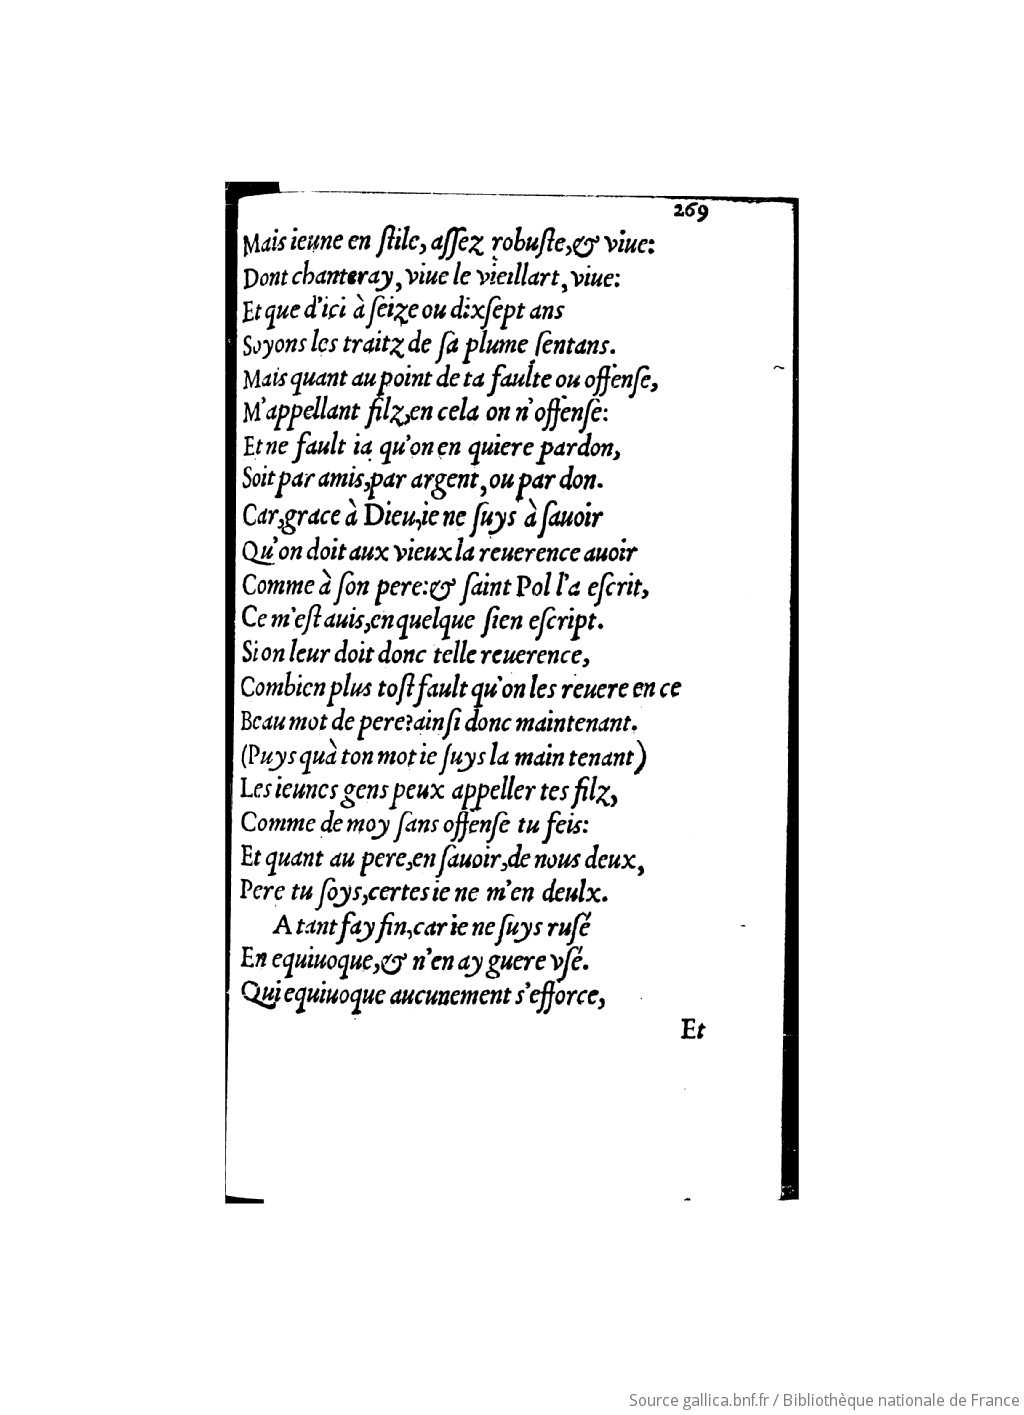 269
Mais ieune en ſtile, aſſez robuſte,& viue:
Dont chanteray, viue le vieillart, viue:
Et que d'ici à ſeize ou dixſept ans
Soyons les traitz de ſa plume ſentans.
Mais quant au point de ta faulte ou offenſe,
M'appellant filz,en cela on n'offenſe:
Et ne fault ia qu'on en quiere pardon,
Soit par amis,par argent, ou par don.
Car,grace à Dieu,ie ne ſuys à ſauoir
Qu'on doit aux vieux la reuerence auoir
Comme à ſon pere:& ſaint Pol l'a eſcrit,
Ce m'eſt auis,en quelque ſien eſcript.
Si on leur doit donc telle reuerence,
Combien plus toſt fault qu'on les reuere en ce
Beau mot de pere?ainſi donc maintenant.
(Puys quà ton mot ie ſuys la main tenant)
Les ieunes gens peux appeller tes filz,
Comme de moy ſans offenſe tu feis:
Et quant au pere,en ſauoir,de nous deux,
Pere tu ſoys,certes ie ne m'en deulx.
A tant fay fin,car ie ne ſuys ruſé
En equiuoque,& n'en ay guere vſé.
Qui equiuoque aucunement s'efforce,
Et
Source gallica.bnf.fr / Bibliothèque nationale de France